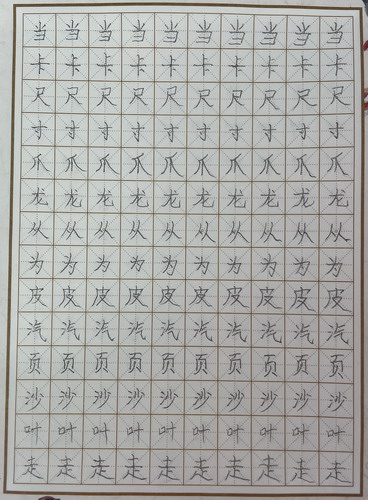 当当当当当当当当当当
卡卡卡卡卡卡卡卡卡卡
尺尺尺尺尺尺尺尺尺尺
寸寸寸寸寸寸寸寸寸寸
爪爪爪爪爪爪爪爪爪爪
龙龙龙龙龙龙龙龙龙龙
从从从从从从从从从从
为为为为为为为为为为
皮皮皮皮皮皮皮皮皮皮
汽汽汽汽汽汽汽汽汽汽
页页页页页页页页页页
沙沙沙沙沙沙沙沙沙沙
叶叶叶叶叶叶叶叶叶叶
走走走走走走走走走走